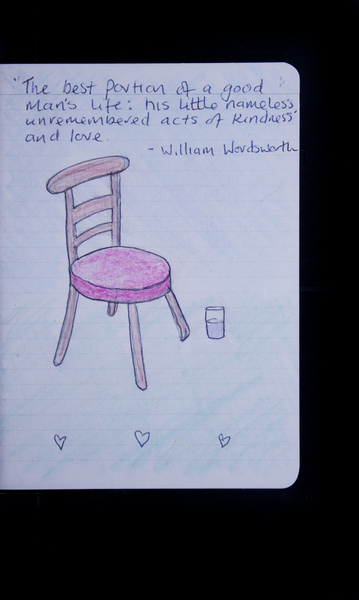 "The best portion of a good
man's life: his little nameless
unremembered acts of kindness"
and love.
- William Wordsworth